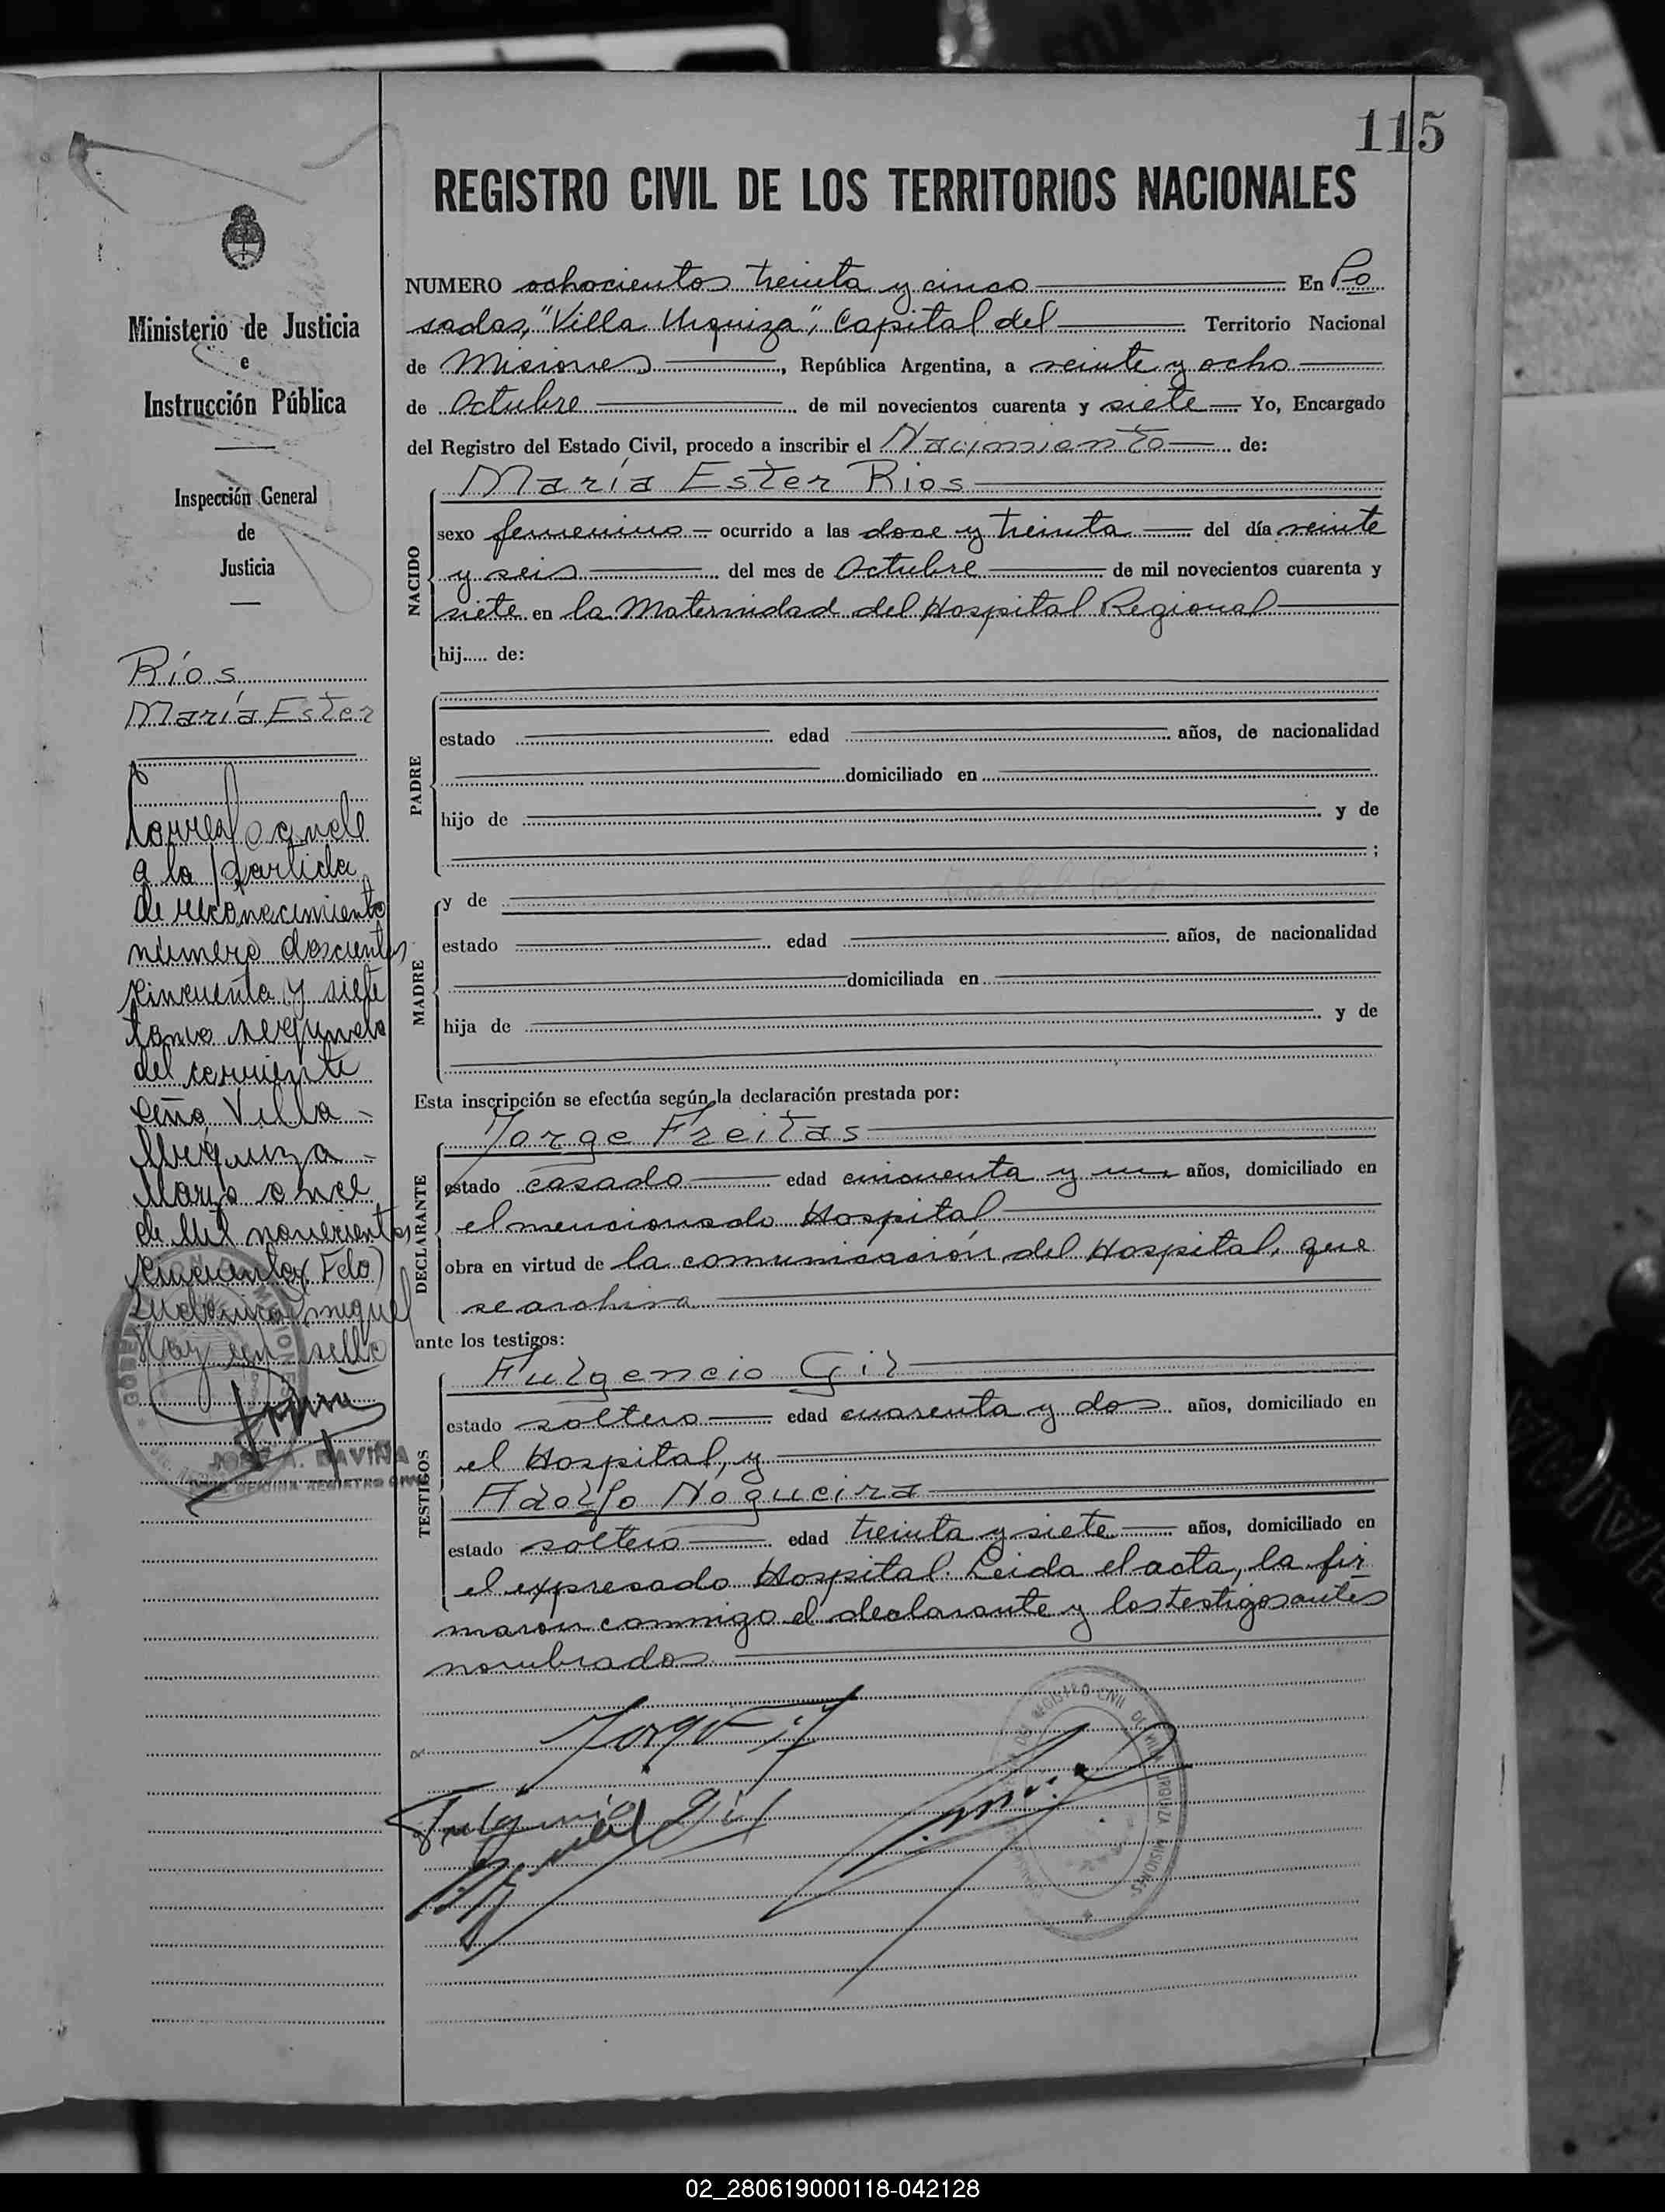 115
REGISTRO CIVIL DE LOS TERRITORIOS NACIONALES
Ministerio de Justicia
e
Instrucción Pública
Inspección General
de
Justicia
Ríos
María Ester
Corresponde
a la partida
de reconocimiento
número doscientos
cincuenta y siete
tomo segundo
del corriente
año Villa
Urquiza
Marzo once
de Mil novecientos
cincuenta Fdo)
Hay un sello
JOSE A. DAVIÑA
NUMERO ochocientos treinta y cinco En Po
sadas, "Villa Urquiza", Capital del Territorio Nacional
de Misiones, República Argentina, a veinte y ocho
de Octubre de mil novecientos cuarenta y siete Yo, Encargado
del Registro del Estado Civil, procedo a inscribir el Nacimiento de:
María Ester Rios
NACIDO
sexo femenino ocurrido a las doce y treinta del día veinte
y seis del mes de Octubre de mil novecientos cuarenta y
siete en la Maternidad del Hospital Regional
hij..... de:
PADRE
estado edad años, de nacionalidad
domiciliado en
hijo de y de
;
MADRE
y de
estado edad años, de nacionalidad
domiciliada en
hija de y de
Esta inscripción se efectúa según la declaración prestada por:
DECLARANTE
Jorge Freitas
estado casado edad cincuenta y un años, domiciliado en
el mencionado Hospital
obra en virtud de la comunicación del Hospital, que
se archiva
ante los testigos:
TESTIGOS
Fulgencio Gil
estado soltero edad cuarenta y dos años, domiciliado en
el Hospital, y
Adolfo Nogueira
estado soltero edad treinta y siete años, domiciliado en
el expresado Hospital. Leida el acta, la fir
maron conmigo el declarante y los testigos antes
nombrados
Fulgencio Gil
REGISTRO CIVIL DE VILLA URQUIZA MISIONES
02_280619000118-042128